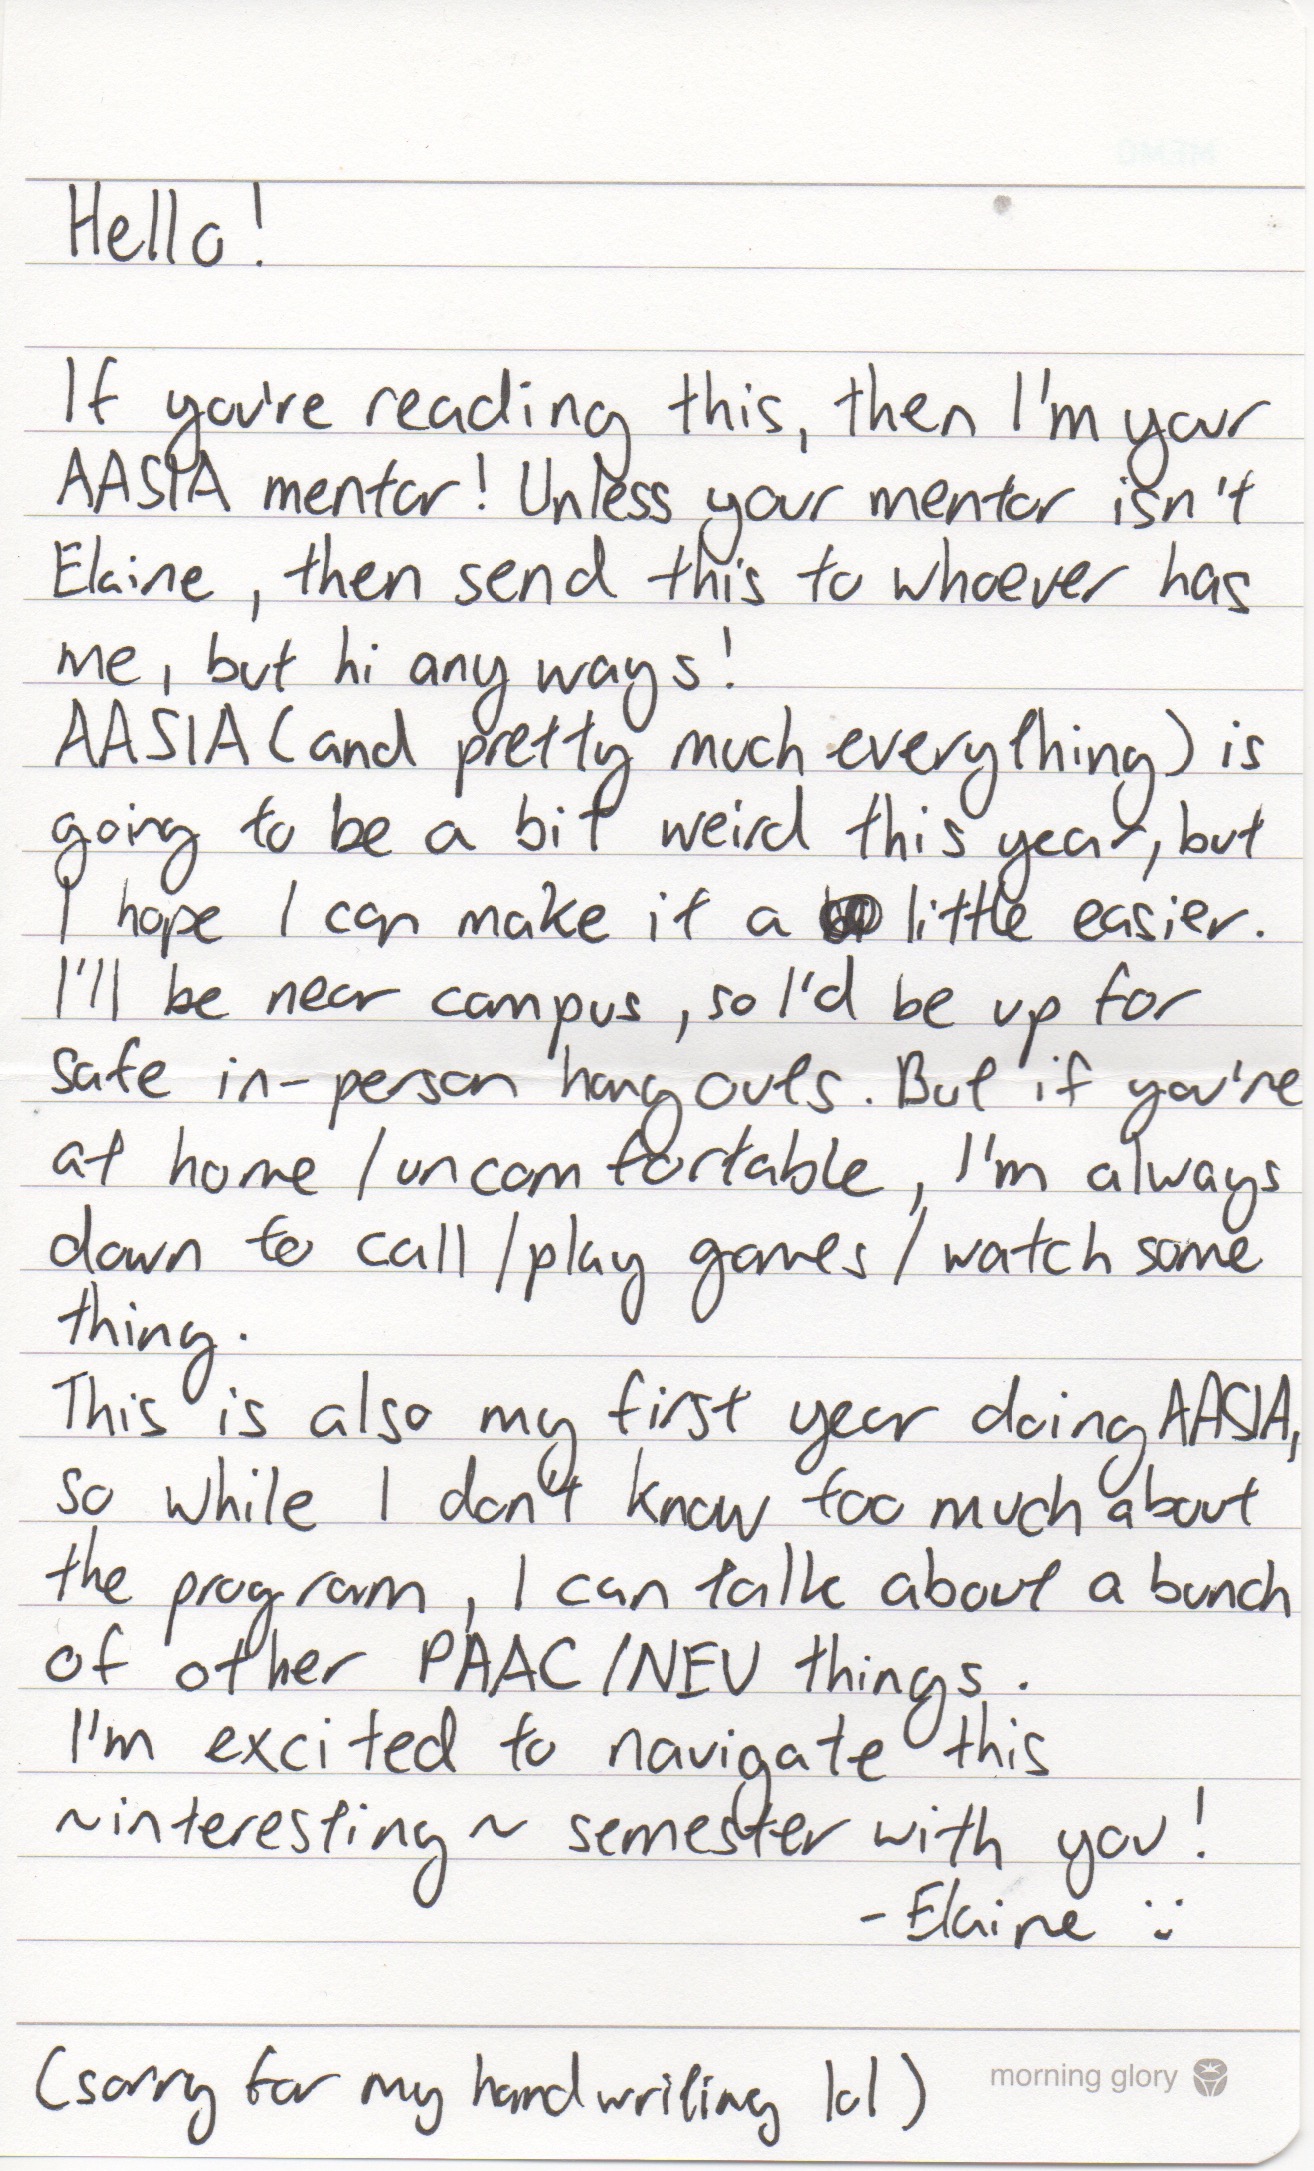 Hello!
If you're reading this, then I'm your
AASIA mentor! Unless your mentor isn't
Elaine, then send this to whoever has
me, but hi any ways!
AASIA (and pretty much everything) is
going to be a bit weird this year, but
I hope I can make it a little easier.
I'll be near campus, so I'd be up for
safe in-person hang outs. But if you're
at home / uncomfortable, I'm always
down to call / play games / watch some
thing.
This is also my first year doing AASIA,
so while I don't know too much about
the program, I can talk about a bunch
of other PAAC / NEU things.
I'm excited to navigate this
~interesting~ semester with you!
- Elaine :)
(sorry for my handwriting lol)
morning glory